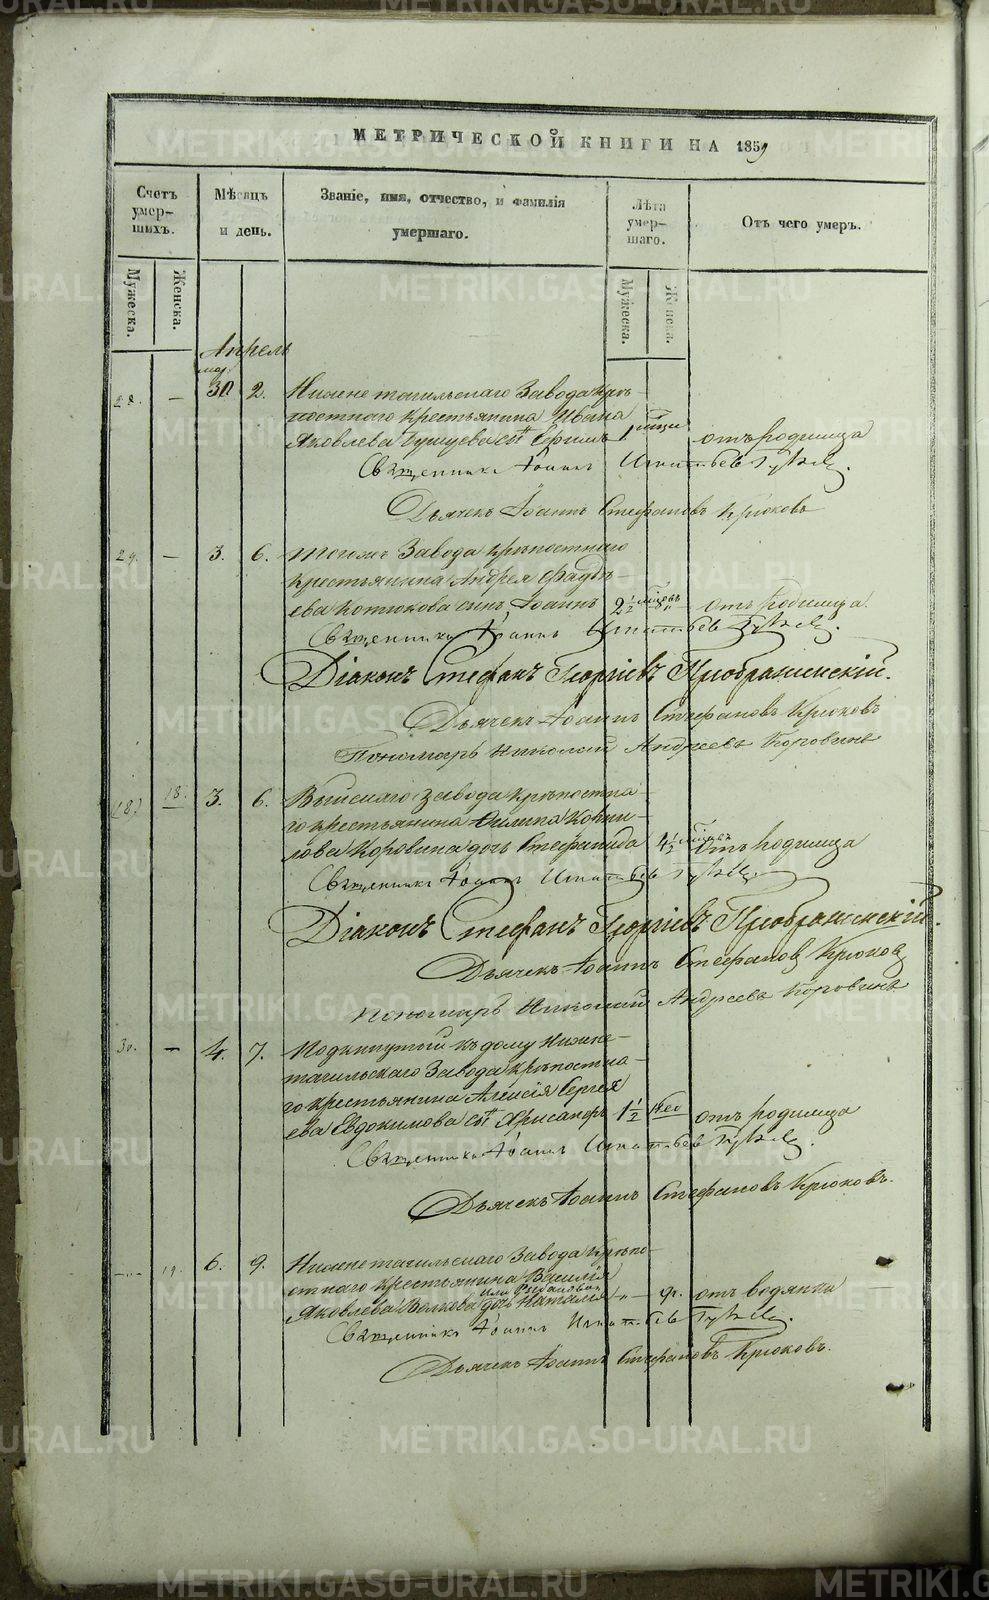 МЕТРИЧЕСКОЙ КНИГИ НА 1859
Счетъ умер-шихъ.
Мѣсяцъ и день.
Званіе, имя, отчество, и фамилія умершаго.
Лѣта умер-шаго.
Отъ чего умеръ.
Мужеска.
Женска.
Мужеска.
Женска.
Апрель
28. — 30 2. Нижнетагильскаго Завода крѣ-
постнаго крестьянина Ивана
Яковлева сынъ 1 отъ родимца
Священникъ Іоаннъ Игнатьевъ
Дьячекъ Іоаннъ Стефановъ Крюковъ
29. — 3. 6. Тогожъ Завода крѣпостнаго
крестьянина Андрея Фадѣ-
ева сынъ Іоаннъ 2 1/2 мѣсяцевъ отъ родимца.
Священникъ Іоаннъ Игнатьевъ
Діаконъ Стефанъ Георгіевъ Преображенскій.
Дьячекъ Іоаннъ Стефановъ Крюковъ
Пономарь Николай Андреевъ Коровинъ
18. 3. 6. Выйскаго завода крѣпостна-
го крестьянина Филипа Корни-
лова Коровина дочь Стефанида 4 1/2 отъ родимца
Священникъ Іоаннъ Игнатьевъ
Діаконъ Стефанъ Георгіевъ Преображенскій.
Дьячекъ Іоаннъ Стефановъ Крюковъ
Пономарь Николай Андреевъ Коровинъ
30. — 4. 7. Подкинутый къ дому Нижне-
тагильскаго Завода крѣпостна-
го крестьянина Алексія Сергѣ
ева Евдокимова сынъ Хрисанфъ 1 1/2 нед отъ родимца
Священникъ Іоаннъ Игнатьевъ
Дьячекъ Іоаннъ Стефановъ Крюковъ.
— 19. 6. 9. Нижнетагильскаго Завода крѣпо-
стнаго крестьянина Василія
Яковлева Волкова или дочь Наталія — отъ водянки
Священникъ Іоаннъ Игнатьевъ
Дьячекъ Іоаннъ Стефановъ Крюковъ.
METRIKI.GASO-URAL.RU